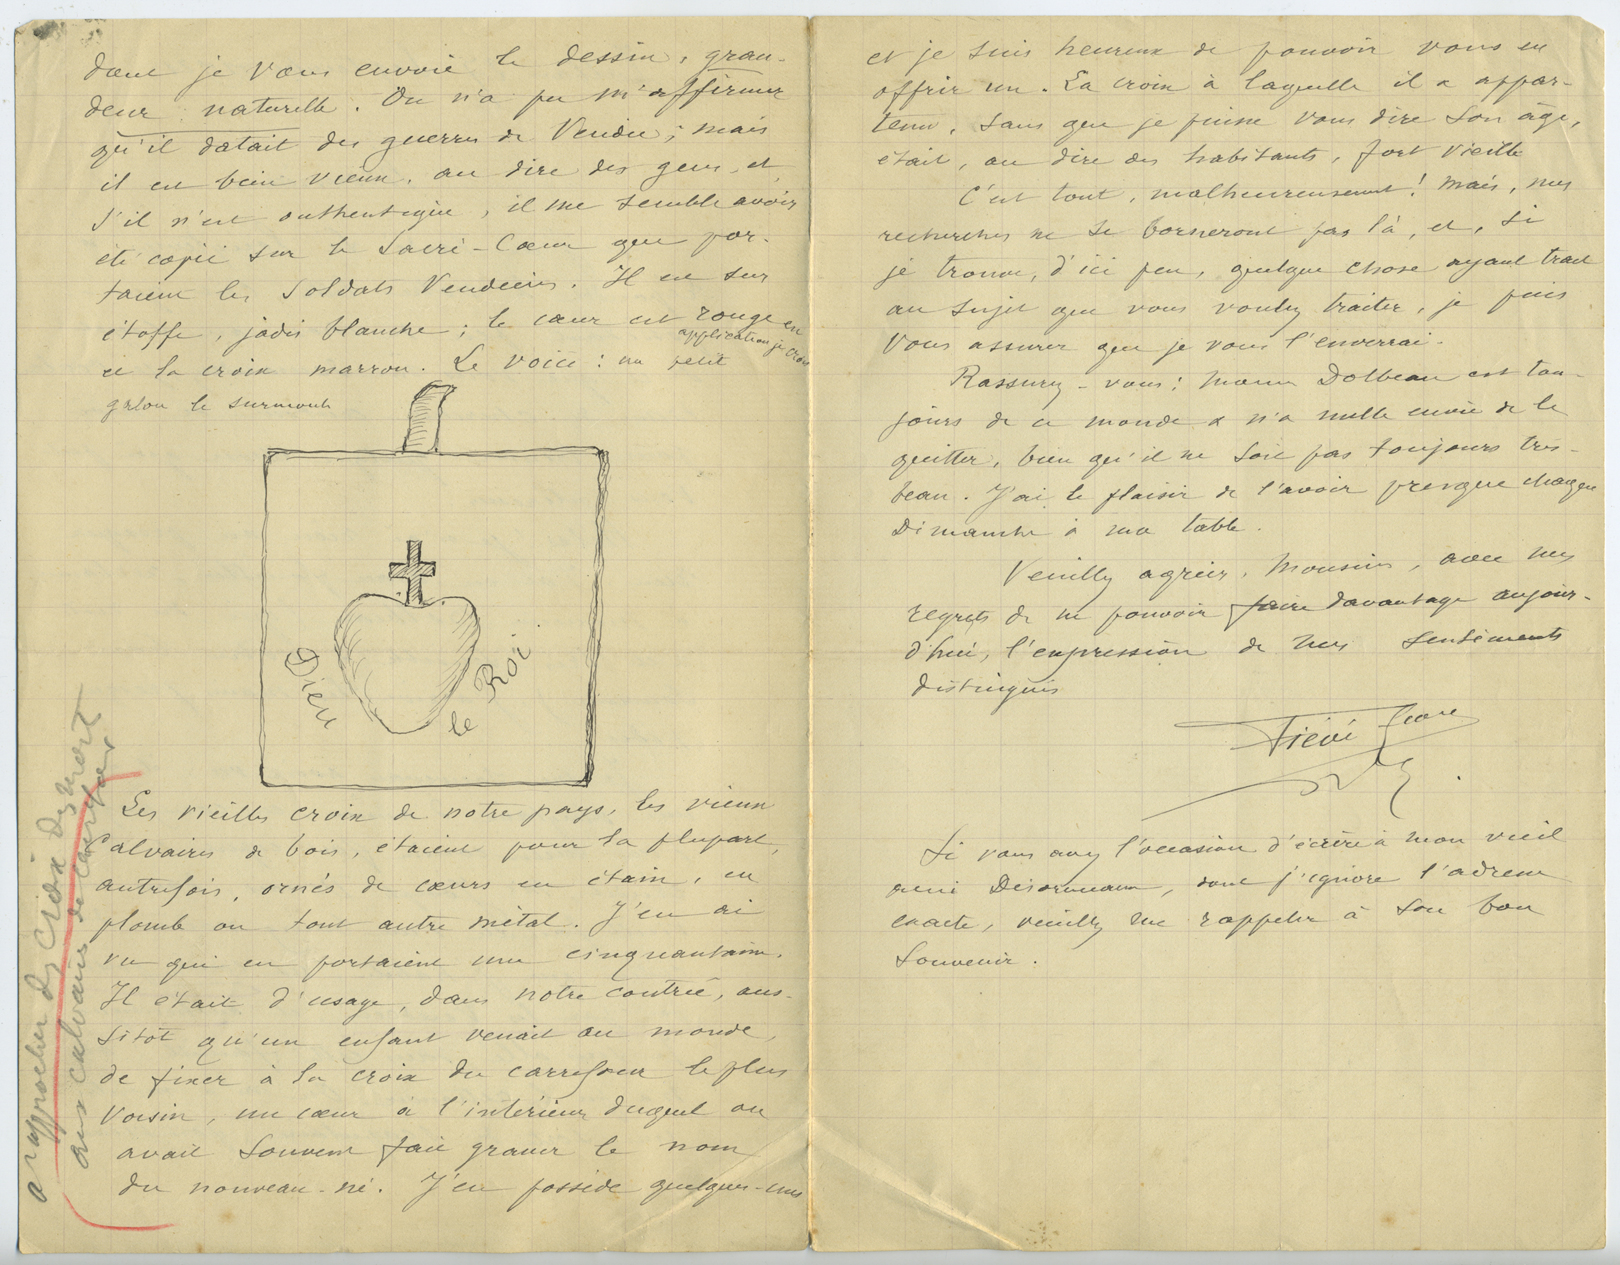 dont je vous envoie le dessin, gran-
deur naturelle. On n'a pu m'affirmer
qu'il datait des guerres de Vendée ; mais
il est bien vieux, au dire des gens, et,
s'il n'est authentique, il me semble avoir
été copié sur le Sacré-Cœur que por-
taient les Soldats Vendéens. Il est sur
étoffe, jadis blanche ; le cœur est rouge en
application je crois
et la croix marron. Le voici : un petit
galon le surmonte
Dieu le Roi.
Les vieilles croix de notre pays, les vieux
Calvaires de bois, étaient pour la plupart,
autrefois, ornés de cœurs en étain, en
plomb ou tout autre métal. J'en ai
vu qui en portaient une cinquantaine.
Il était d'usage, dans notre contrée, aus-
sitôt qu'un enfant venait au monde,
de fixer à la croix du carrefour le plus
voisin, un cœur à l'intérieur duquel on
avait souvent fait graver le nom
du nouveau-né. J'en possède quelques-uns
a rapprocher des croix des mort
aux calvaires de carrefour
et je suis heureux de pouvoir vous en
offrir un. La croix à laquelle il a appar-
tenu, sans que je puisse vous dire son âge,
était, au dire des habitants, fort vieille
C'est tout, malheureusement ! Mais, mes
recherches ne se borneront pas là, et, si
je trouve, d'ici peu, quelque chose ayant trait
au sujet que vous voulez traiter, je puis
vous assurer que je vous l'enverrai.
Rassurez-vous ; Dolbeau est tou-
jours de ce monde & n'a nulle envie de le
quitter, bien qu'il ne soit pas toujours très-
beau. J'ai le plaisir de l'avoir presque chaque
Dimanche à ma table.
Veuillez agréer, Monsieur, avec mes
regrets de ne pouvoir faire davantage aujour-
d'hui, l'expression de mes sentiments
distingués
Si vous avez l'occasion d'écrire à mon vieil
ami Désormeaux, dont j'ignore l'adresse
exacte, veuillez me rappeler à son bon
souvenir.